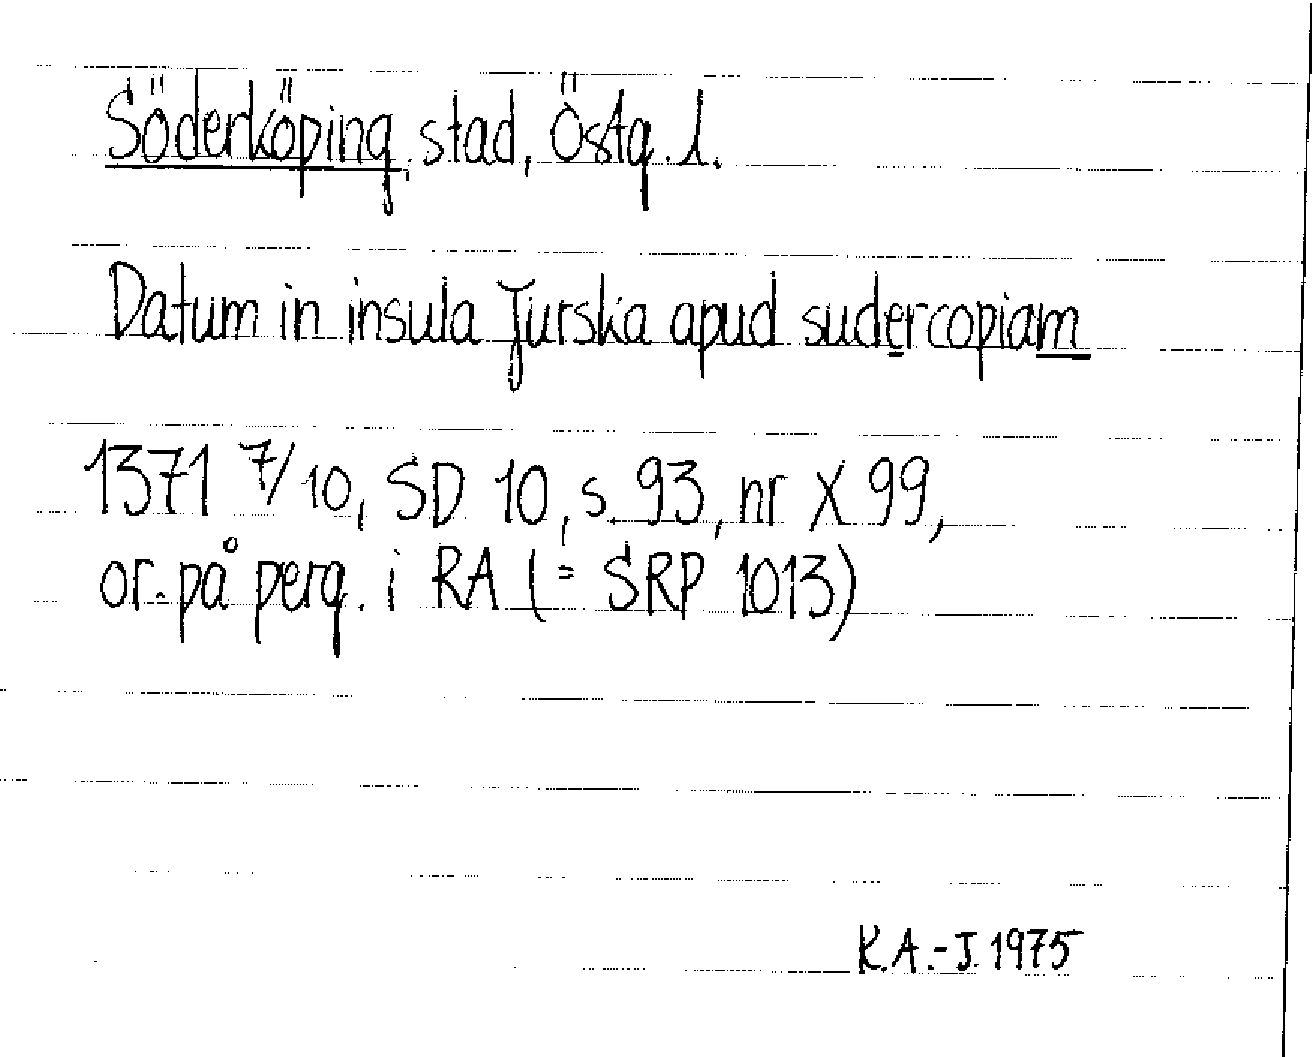 Söderköping, stad, Östg. l.
Datum in insula Jurska apud sudercopiam
1371 7/10, SD 10, s. 93, nr X 99,
or. på perg. i RA (= SRP 1013)
K.A.-J. 1975